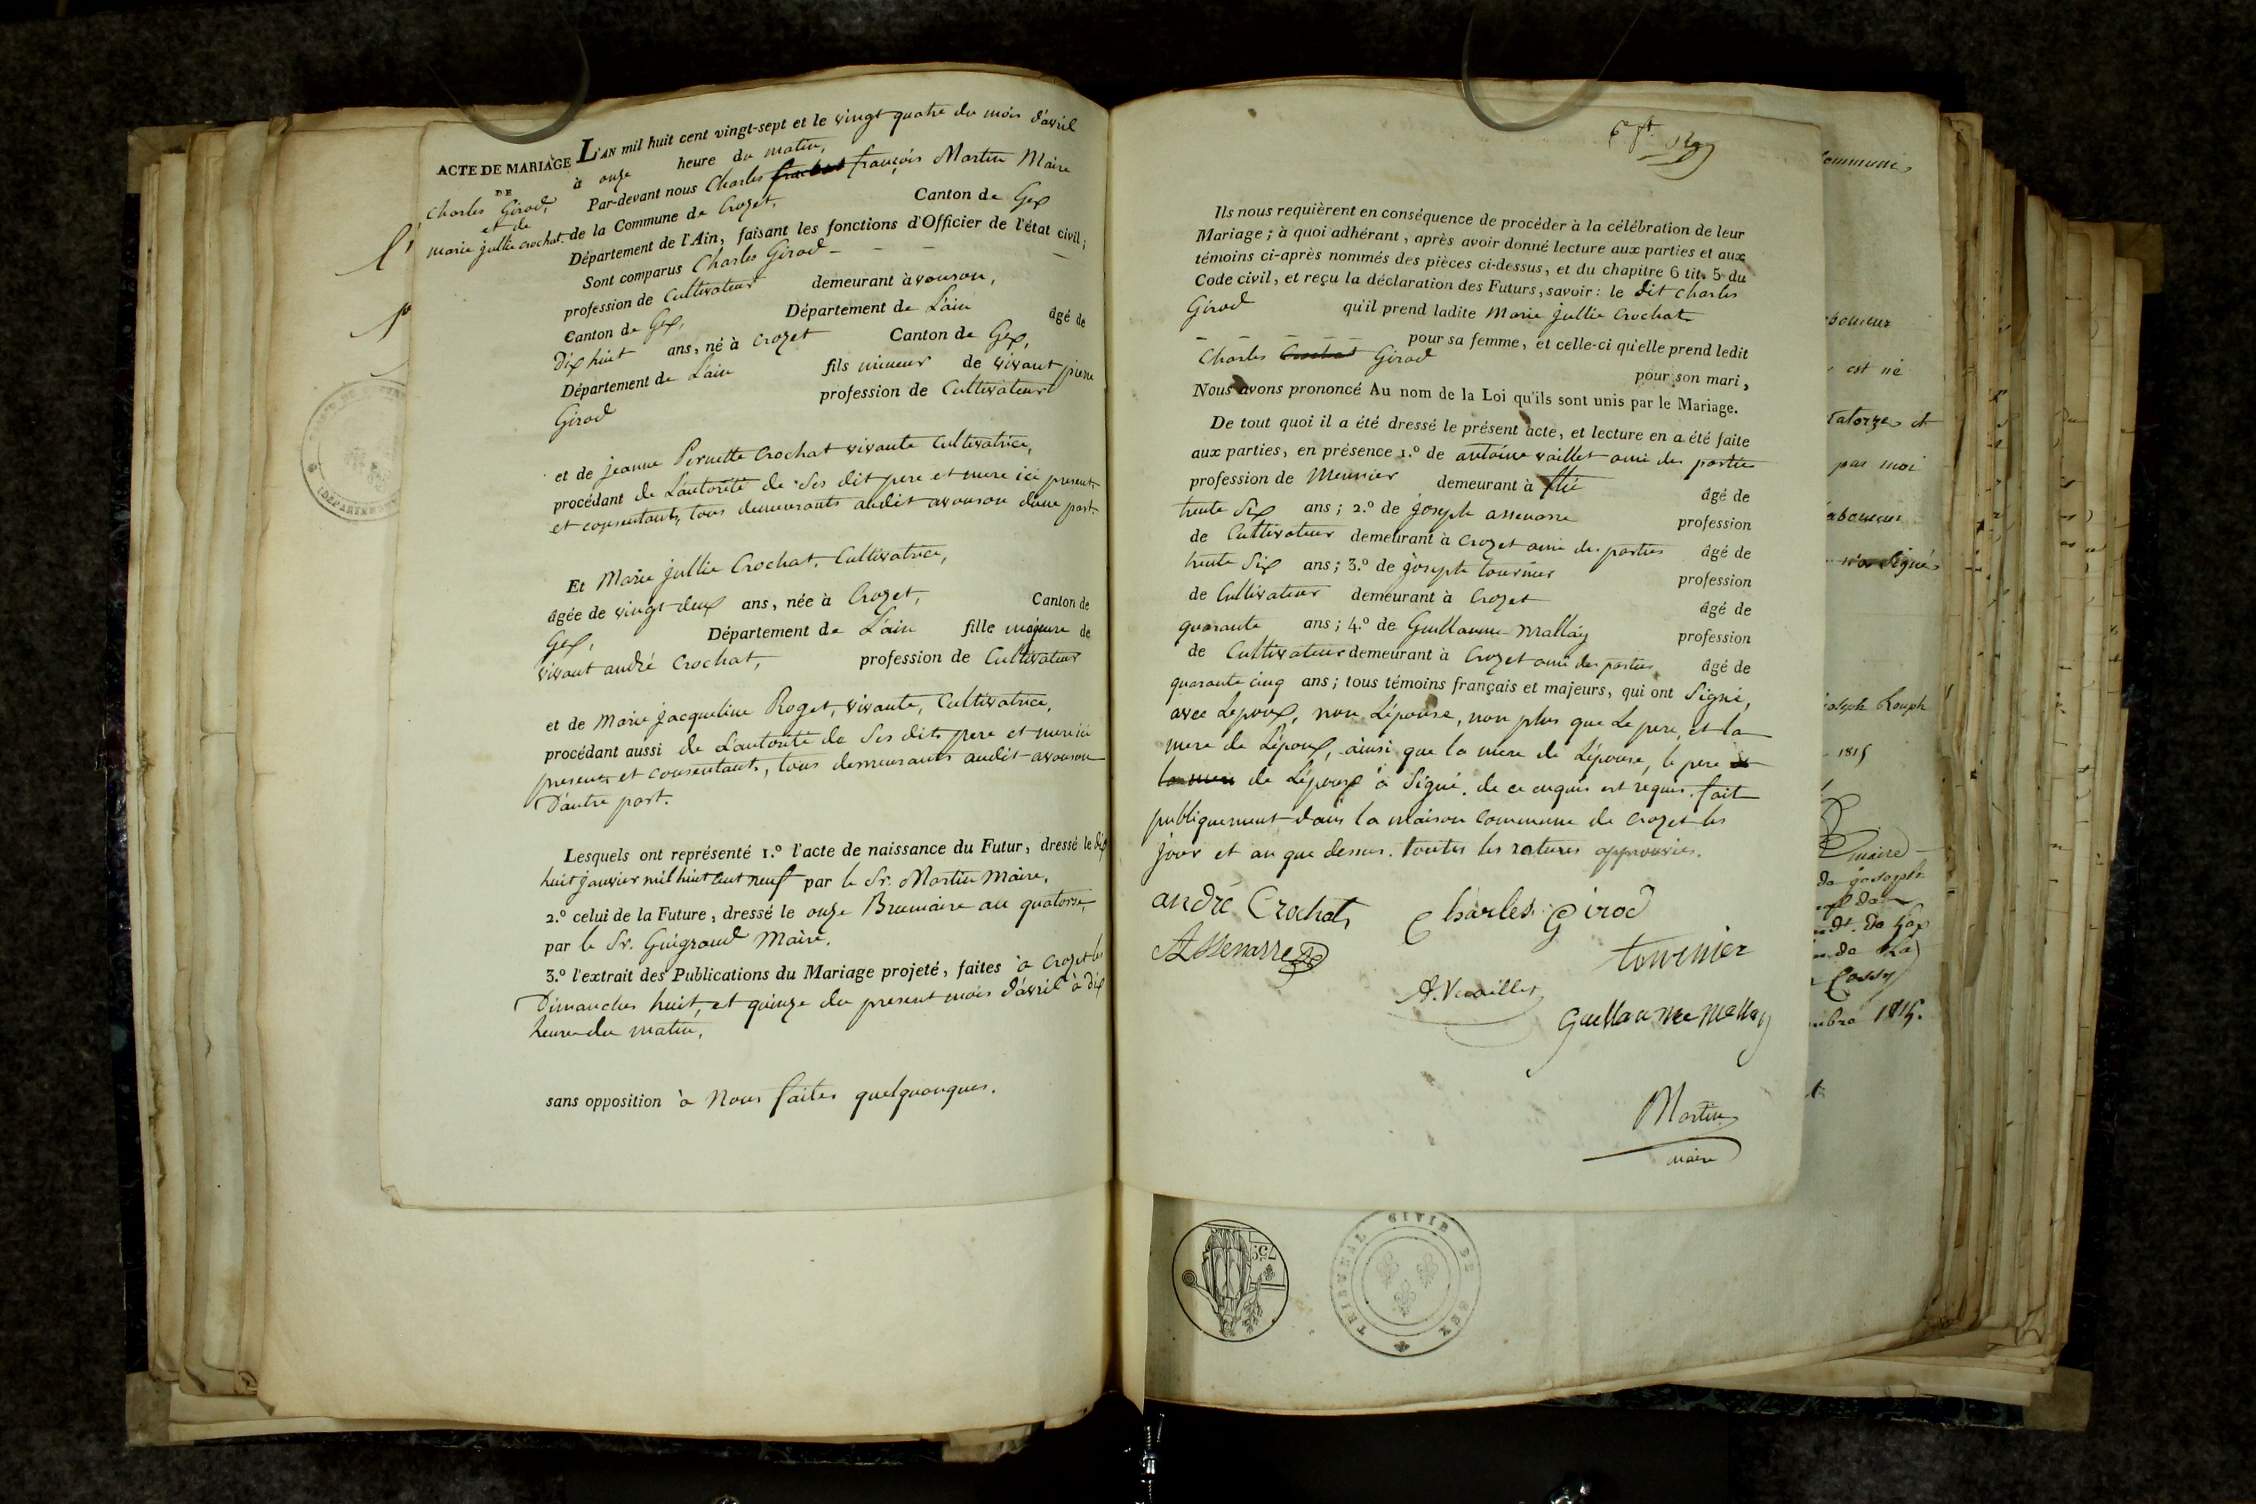 ACTE DE MARIAGE
DE
Charles Girod,
et de
marie jullie crochat.
L'AN mil huit cent vingt-sept et le vingt quatre du mois d'avril
à onze heure du matin,
Par-devant nous Charles françois Martin Maire
de la Commune de Crozet, Canton de Gex
Département de l'Ain, faisant les fonctions d'Officier de l'état civil;
Sont comparus Charles Girod
profession de Cultivateur demeurant à avouson,
Canton de Gex, Département de L'ain âgé de
dix huit ans, né à crozet Canton de Gex,
Département de L'ain fils mineur de vivant pierre
Girod profession de Cultivateur
et de jeanne Pernette Crochat vivante cultivatrice,
procédant de Lautorité de Ses dit pere et mere ici present
et consentants, tous demeurants audit avouson dune part.
Et Marie jullie Crochat, Cultivatrice,
âgée de vingt deux ans, née à Crozet, Canton de
Gex, Département de L'ain fille majeure de
vivant andré Crochat, profession de Cultivateur
et de Marie jacqueline Roget, vivante, Cultivatrice,
procédant aussi de L'autorité de Ses dits pere et mere ici
presents et consentants, tous demeurants audit avouson
D'autre part.
Lesquels ont représenté 1.º l'acte de naissance du Futur, dressé le dix
huit janvier mil huit cent neuf par le Sr. Martin Maire.
2.º celui de la Future, dressé le onze Brumaire an quatorse,
par le Sr. Guigraud Maire.
3.º l'extrait des Publications du Mariage projeté, faites à Crozet les
Dimanches huit, et quinze du present mois d'avril à dix
heure du matin,
sans opposition à Nous faites quelquonques.
Ils nous requièrent en conséquence de procéder à la célébration de leur
Mariage; à quoi adhérant, après avoir donné lecture aux parties et aux
témoins ci-après nommés des pièces ci-dessus, et du chapitre 6 tit. 5 du
Code civil, et reçu la déclaration des Futurs, savoir: le dit Charles
Girod qu'il prend ladite Marie jullie Crochat
pour sa femme, et celle-ci qu'elle prend ledit
Charles Crochat Girod
pour son mari,
Nous avons prononcé Au nom de la Loi qu'ils sont unis par le Mariage.
De tout quoi il a été dressé le présent acte, et lecture en a été faite
aux parties, en présence 1.º de antoine vaillet ami des parties
profession de Meunier demeurant à âgé de
trente Six ans; 2.º de joseph assenare profession
de Cultivateur demeurant à crozet ami des parties âgé de
trente Six ans; 3.º de joseph tournier profession
de Cultivateur demeurant à Crozet âgé de
quarante ans; 4.º de Guillaume Mallay profession
de Cultivateur demeurant à Crozet ami des parties âgé de
quarante cinq ans; tous témoins français et majeurs, qui ont Signé,
avec Lepoux, non L'épouse, non plus que Le pere, et la
mere de L'époux, ainsi que la mere de L'épouse, le pere et
la mere de L'époux à Signé. de ce enquis est requis. fait
publiquement dans la maison commune de crozet les
jour et an que dessus. toutes les ratures approuvées.
andré Crochat
Charles Girod
Assenarre
tournier
A. Vuaillet
Guillaume Mallay
Martin
maire
TRIBUNAL CIVIL DE GEX
commune
est né
atorze et
par moi
n'a Signé
joseph
1815
maire
de joseph
1815.